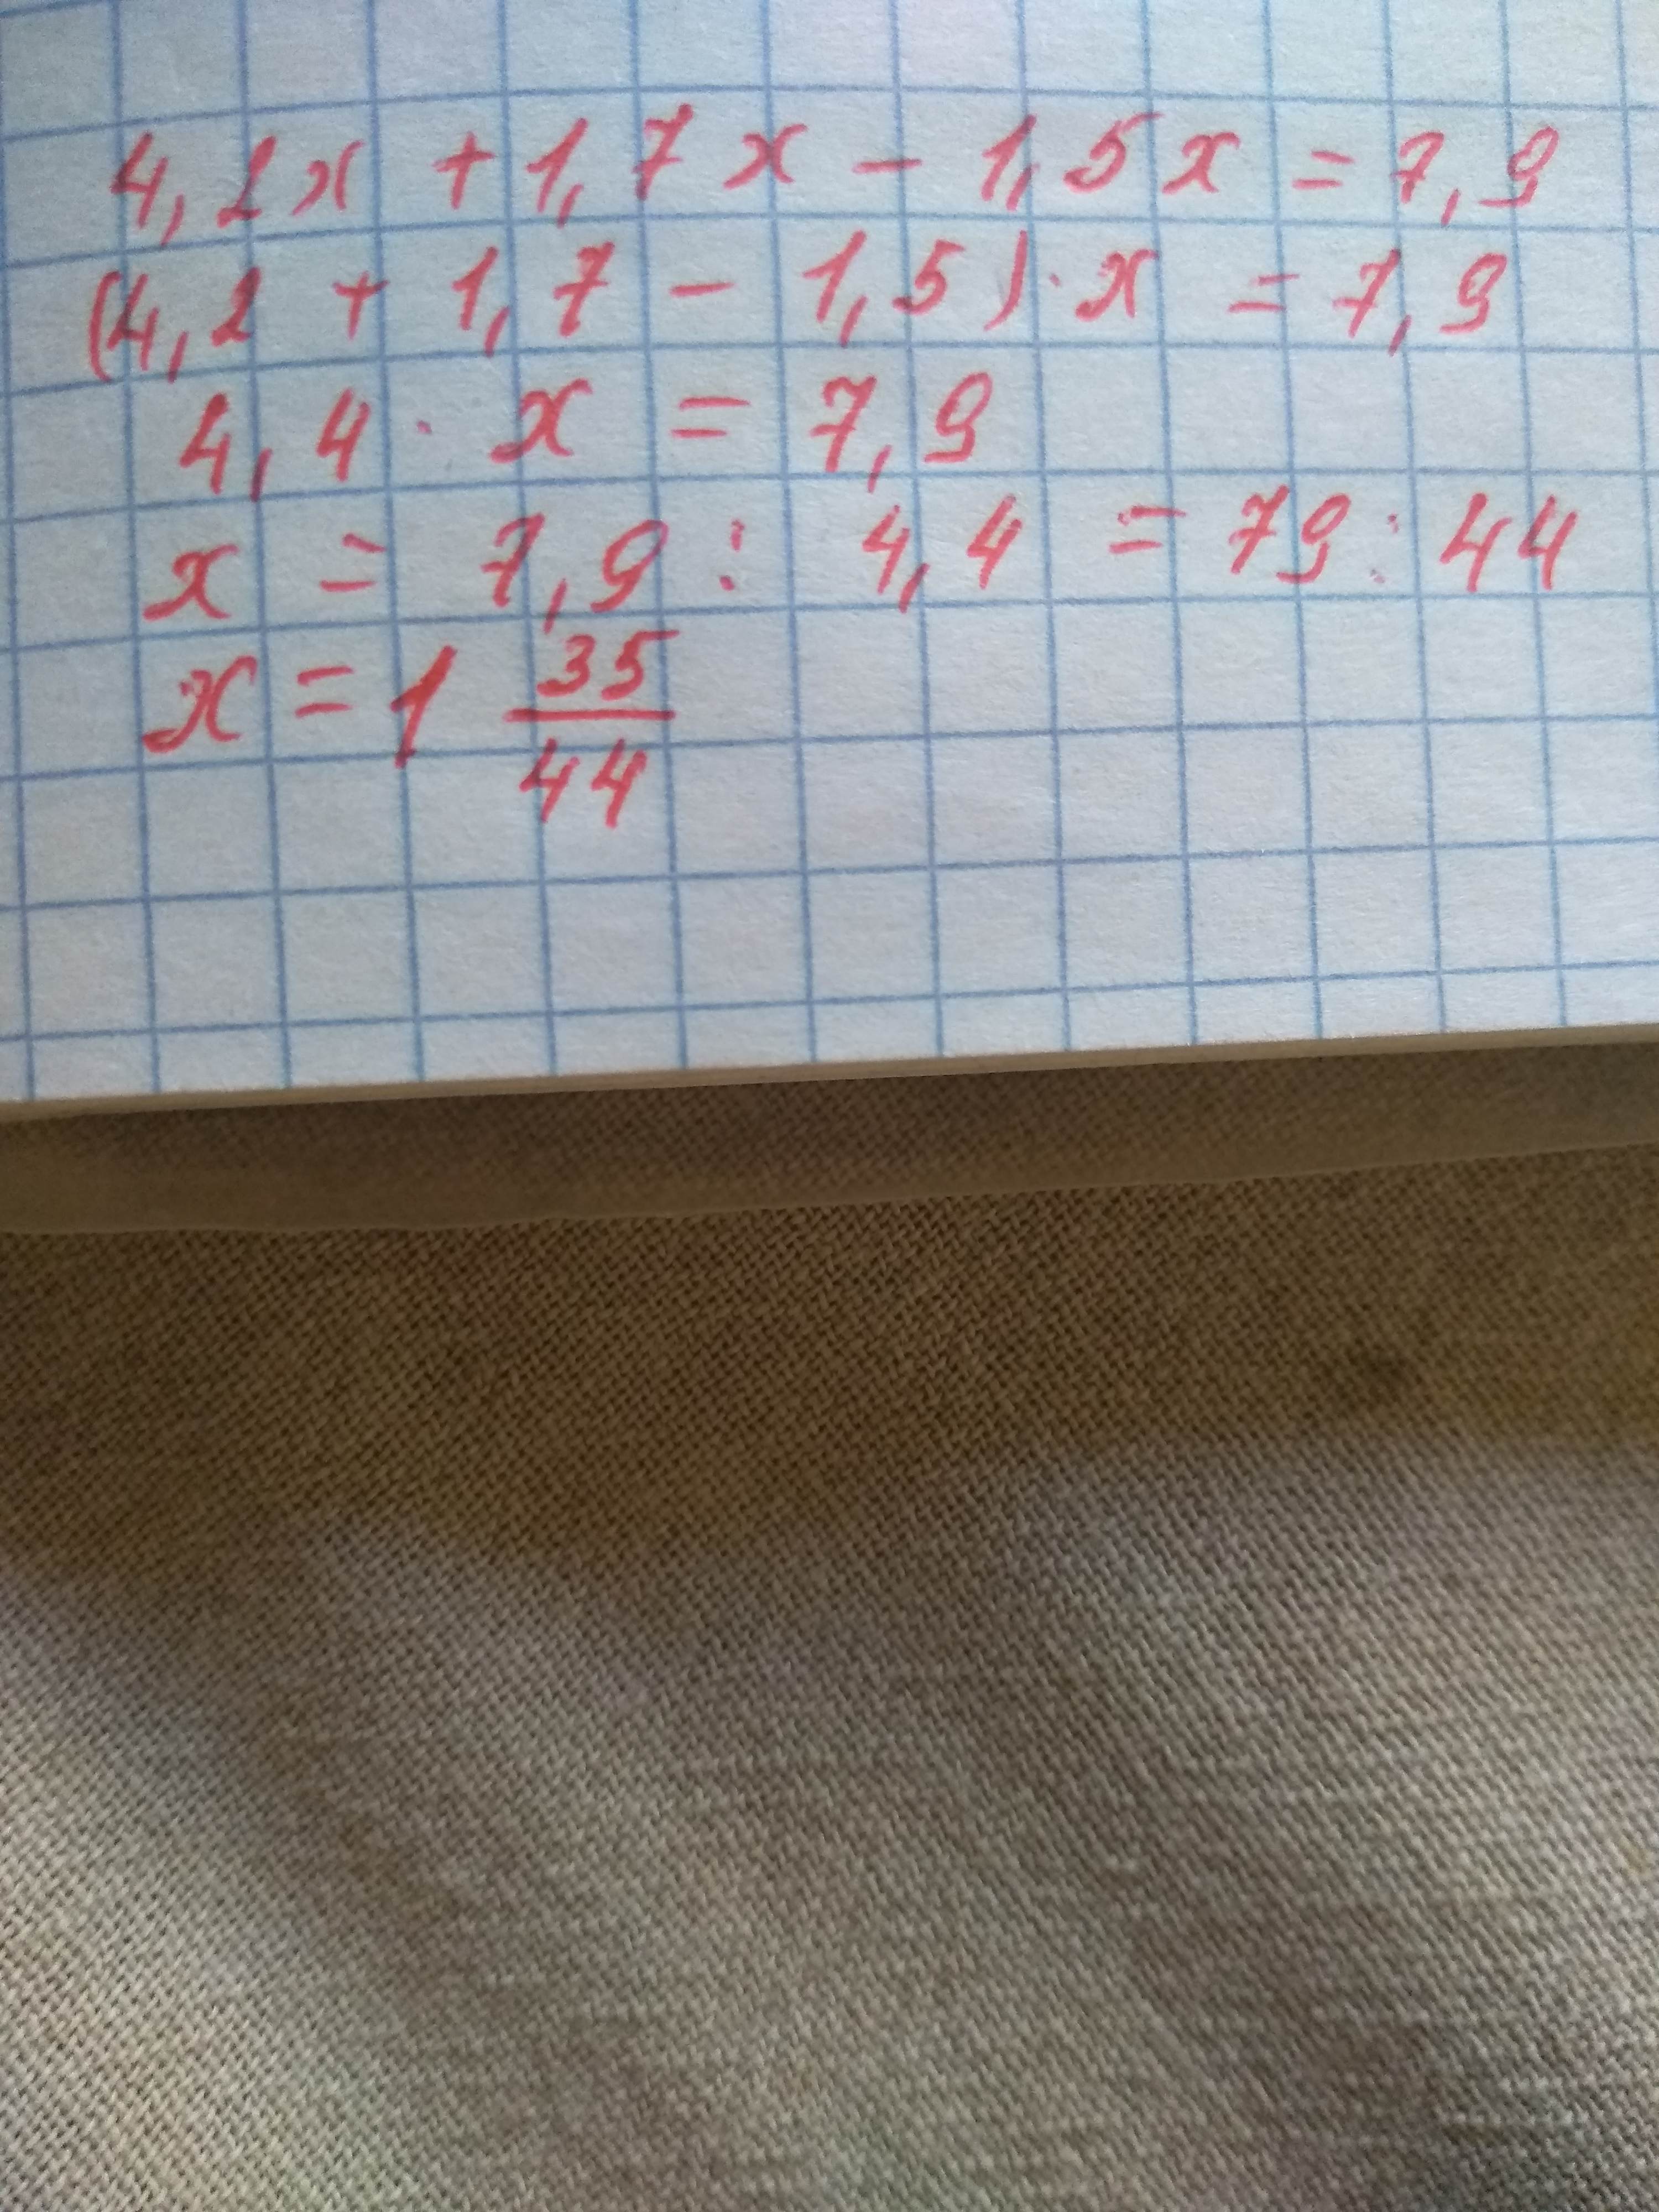 4,2x + 1,7x - 1,5x = 7,9
(4,2 + 1,7 - 1,5) · x = 7,9
4,4 · x = 7,9
x = 7,9 : 4,4 = 79 : 44
x = 1 35/44